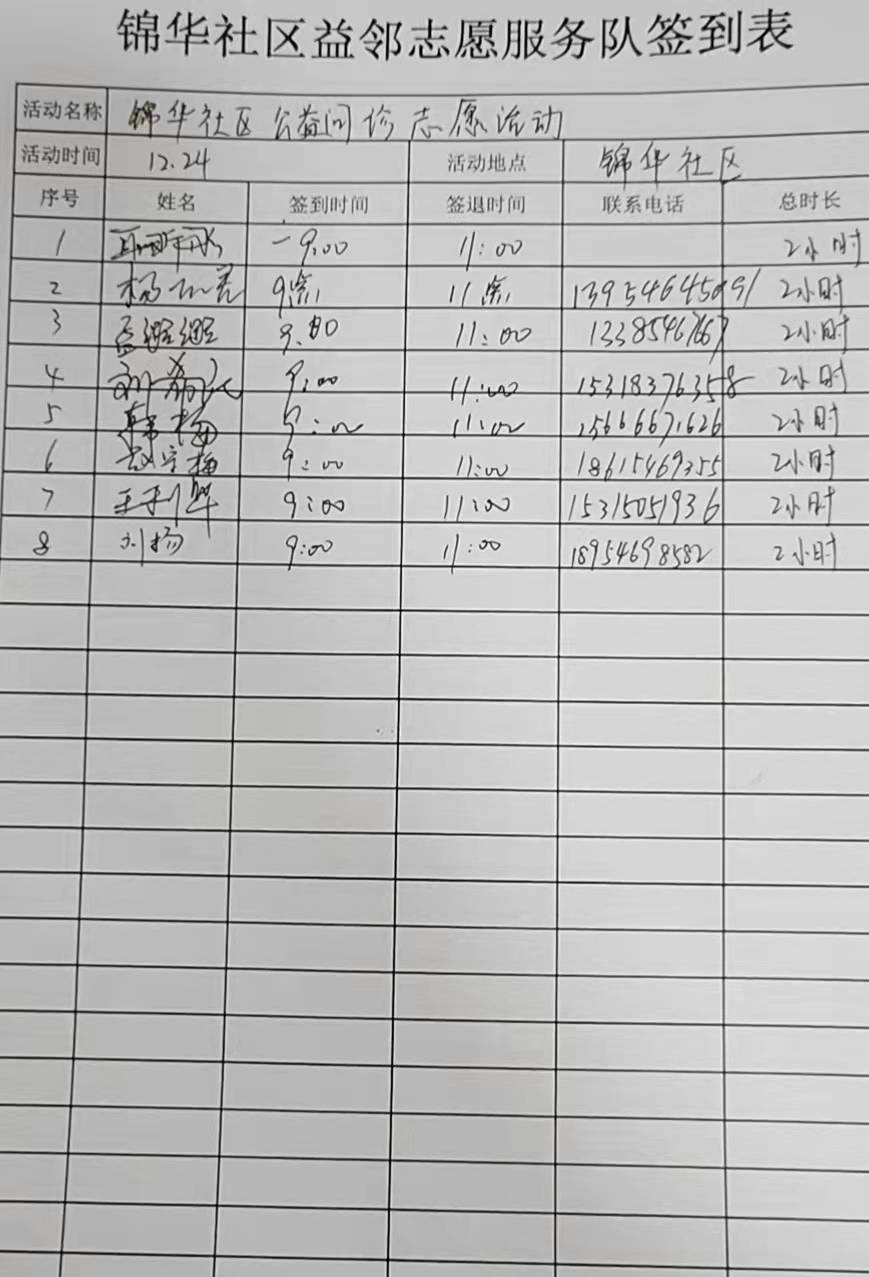 锦华社区益邻志愿服务队签到表
活动名称 锦华社区公益问诊志愿活动
活动时间 12.24 活动地点 锦华社区
序号 姓名 签到时间 签退时间 联系电话 总时长
1 9:00 11:00 2小时
2 杨 9点 11点 2小时
3 孟 9:00 11:00 2小时
4 刘 9:00 11:00 15318376358 2小时
5 韩梅 9:00 11:00 15666671626 2小时
6 赵宝梅 9:00 11:00 18615469355 2小时
7 9:00 11:00 15315051936 2小时
8 刘杨 9:00 11:00 18954698582 2小时